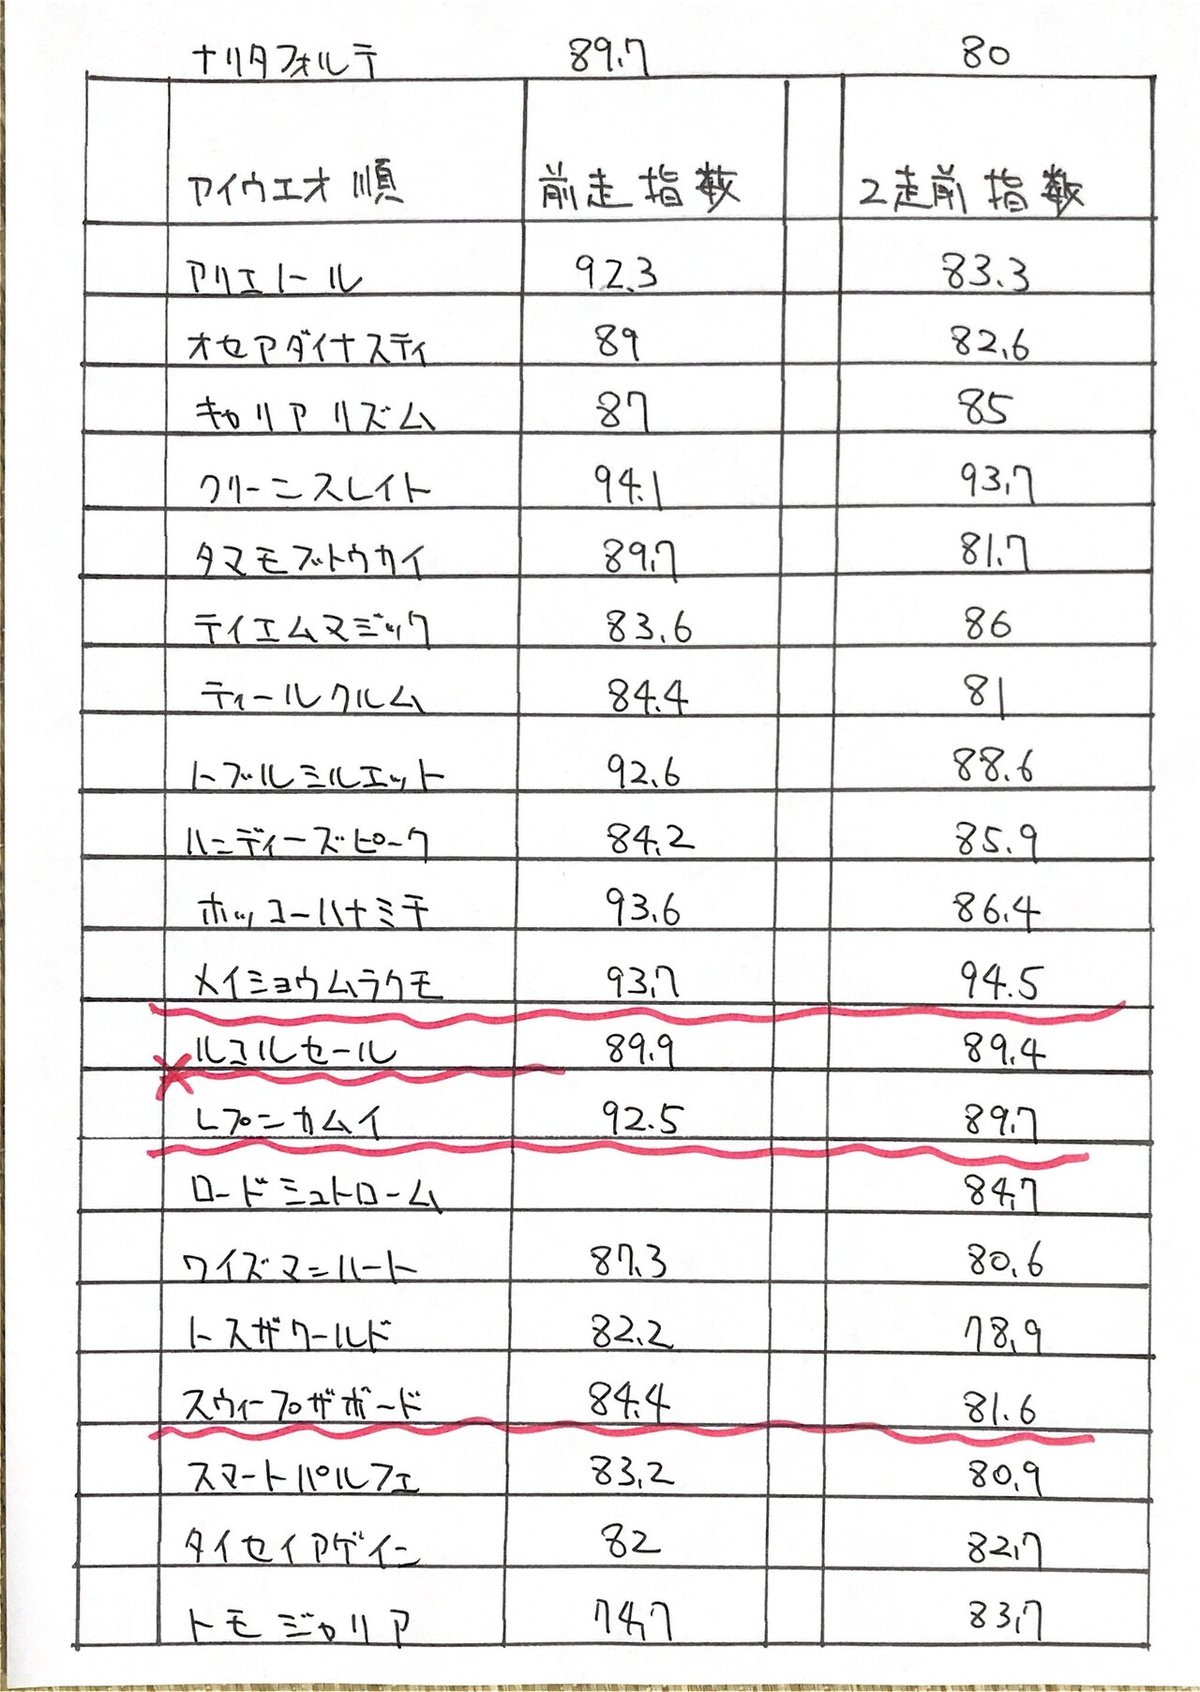 ナリタフォルテ 89.7 80
アイウエオ順 前走指数 2走前指数
アリエノール 92.3 83.3
オセアダイナスティ 89 82.6
キャリアリズム 87 85
クリーンスレイト 94.1 93.7
タマモブトウカイ 89.7 81.7
テイエムマジック 83.6 86
ティールクルム 84.4 81
トーブルミルエット 92.6 88.6
ハンディーズピーク 84.2 85.9
ホッコーハナミチ 93.6 86.4
メイショウムラクモ 93.7 94.5
ルコルセール 89.9 89.4
レプンカムイ 92.5 89.7
ロードシュトローム 84.7
ワイズマンハート 87.3 80.6
トースザワールド 82.2 78.9
スウィープザボード 84.4 81.6
スマートパルフェ 83.2 80.9
タイセイアゲイン 82 82.7
トモジャリア 74.7 83.7